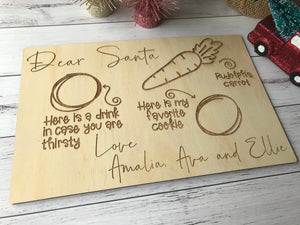 Dear Santa
Rudolph's
carrot
Here is a drink
in case you are
thirsty
Here is my
favorite
cookie
Love
Amalia, Ava and Ellie